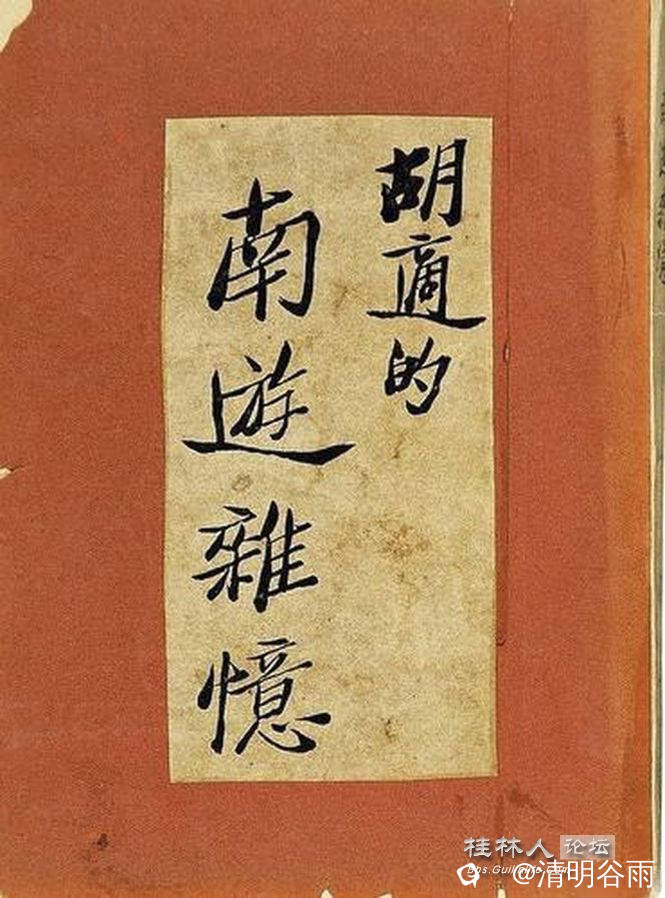 胡適的
南遊雜憶
桂林人论坛
bbs.Guilinlife.com
@清明谷雨